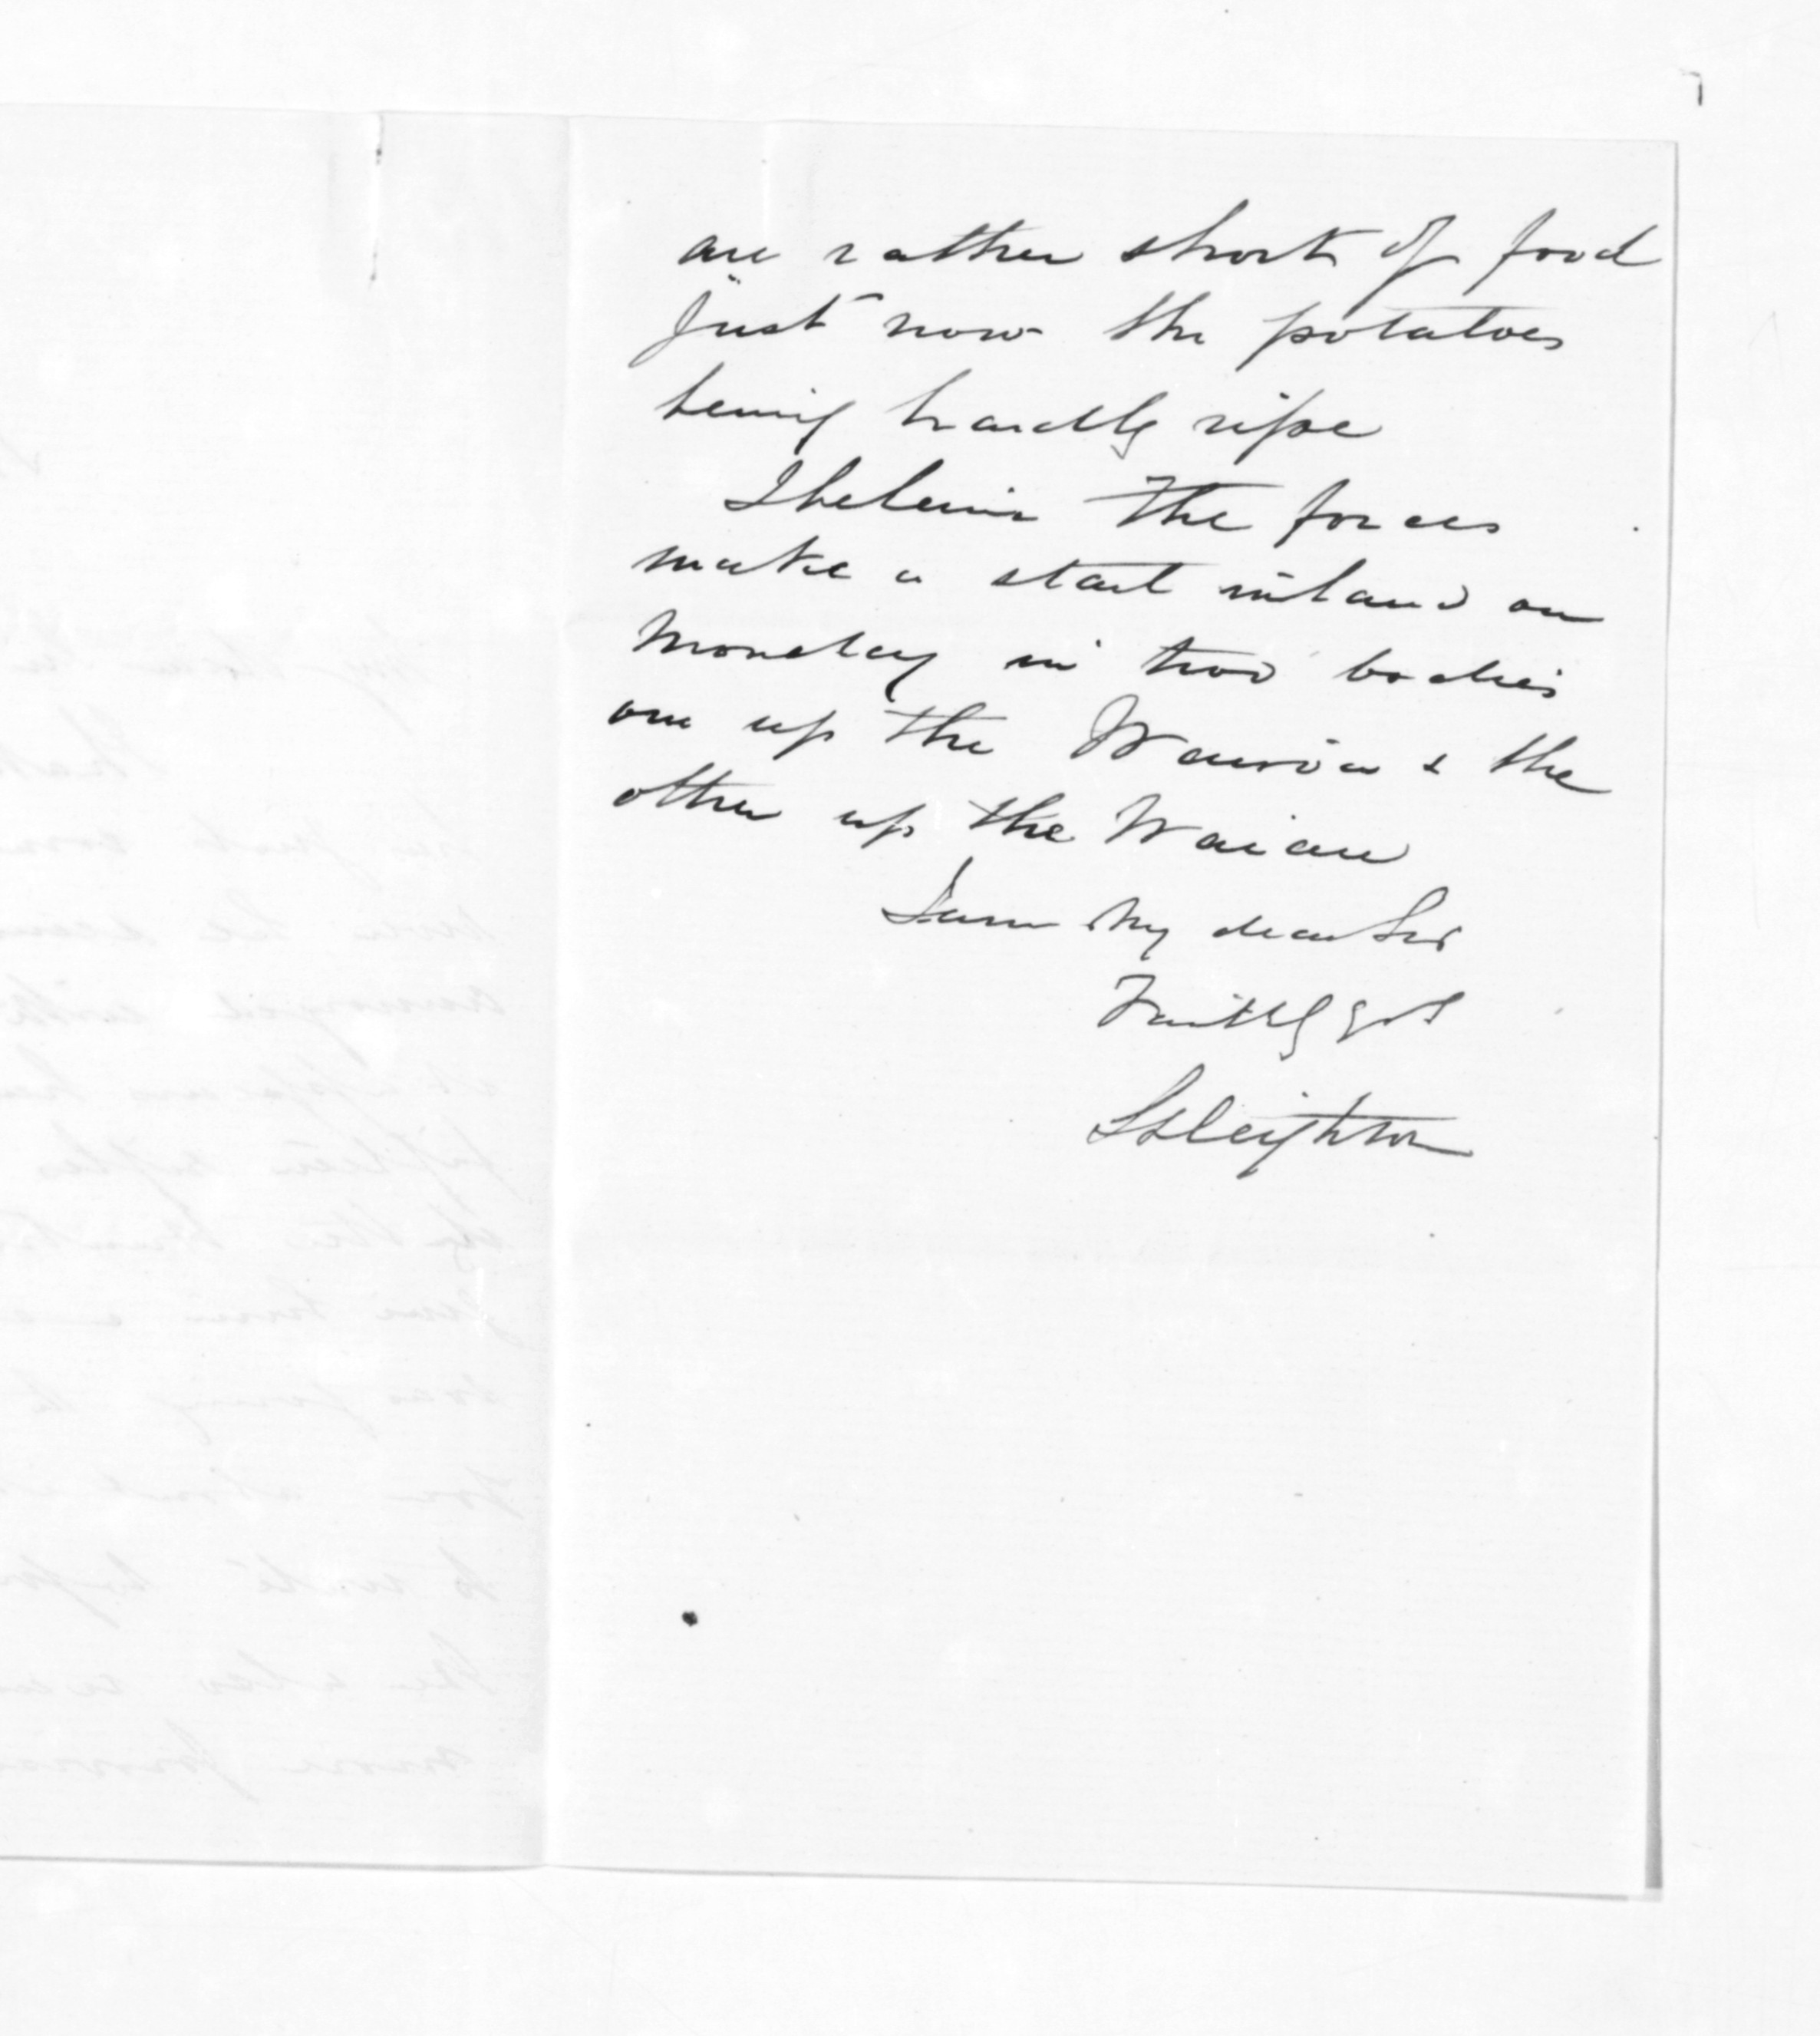 are rather short of food
just now the potatoes
being hardly ripe
I believe the forces
make a start inland on
Monday in two bodies
one up the Wairoa & the
other up the Waiau
I am my dear Sir
Faithfly yrs
Leighton